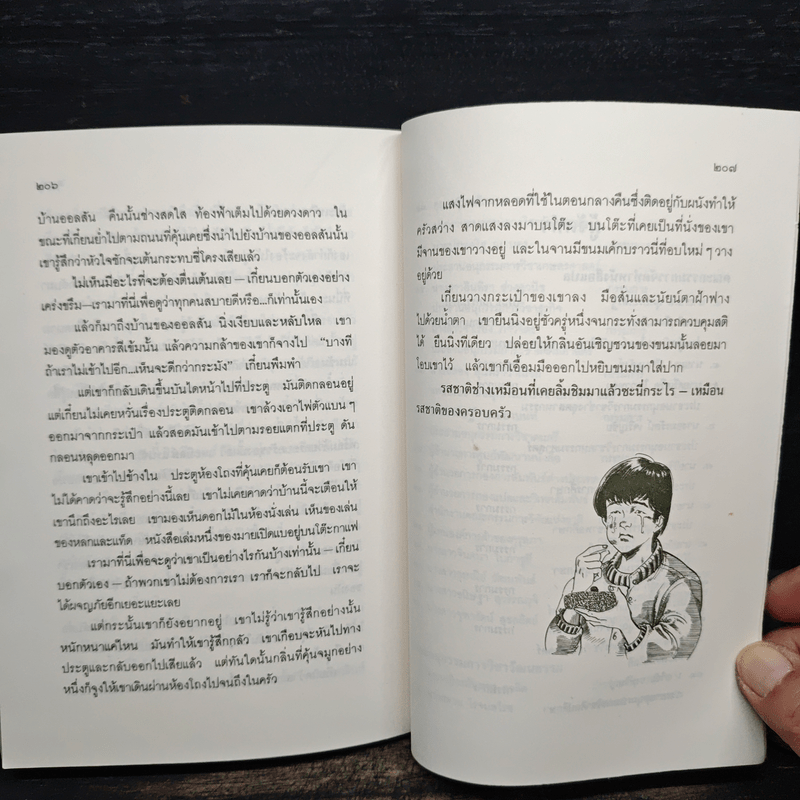 ๒๐๖
บ้านออลสัน คืนนั้นช่างสดใส ท้องฟ้าเต็มไปด้วยดวงดาว ใน
ขณะที่เกี๋ยนย่ำไปตามถนนที่คุ้นเคยซึ่งนำไปยังบ้านของออลสันนั้น
เขารู้สึกว่าหัวใจชักจะเต้นกระทบซี่โครงเสียแล้ว
ไม่เห็นมีอะไรที่จะต้องตื่นเต้นเลย — เกี๋ยนบอกตัวเองอย่าง
เคร่งขรึม—เรามาที่นี่เพื่อดูว่าทุกคนสบายดีหรือ...ก็เท่านั้นเอง
แล้วก็มาถึงบ้านของออลสัน นิ่งเงียบและหลับใหล เขา
มองดูตัวอาคารสีเข้มนั้น แล้วความกล้าของเขาก็จางไป “บางที
ถ้าเราไม่เข้าไปอีก...เห็นจะดีกว่ากระมัง” เกี๋ยนพึมพำ
แต่เขาก็กลับเดินขึ้นบันไดหน้าไปที่ประตู มันติดกลอนอยู่
แต่เกี๋ยนไม่เคยหวั่นเรื่องประตูติดกลอน เขาล้วงเอาไฟตัวแบน ๆ
ออกมาจากกระเป๋า แล้วสอดมันเข้าไปตามรอยแตกที่ประตู ดัน
กลอนหลุดออกมา
เขาเข้าไปข้างใน ประตูห้องโถงที่คุ้นเคยก็ต้อนรับเขา เขา
ไม่ได้คาดว่าจะรู้สึกอย่างนี้เลย เขาไม่เคยคาดว่าบ้านนี้จะเตือนให้
เขานึกถึงอะไรเลย เขามองเห็นดอกไม้ในห้องนั่งเล่น เห็นของเล่น
ของหลกและแท็ด หนังสือเล่มหนึ่งของมายเปิดแบอยู่บนโต๊ะกาแฟ
เรามาที่นี่เพื่อจะดูว่าเขาเป็นอย่างไรกันบ้างเท่านั้น — เกี๋ยน
บอกตัวเอง — ถ้าพวกเขาไม่ต้องการเรา เราก็จะกลับไป เราจะ
ได้ผจญภัยอีกเยอะแยะเลย
แต่กระนั้นเขาก็ยังอยากอยู่ เขาไม่รู้ว่าเขารู้สึกอย่างนั้น
หนักหนาแค่ไหน มันทำให้เขารู้สึกกลัว เขาเกือบจะหันไปทาง
ประตูและกลับออกไปเสียแล้ว แต่ทันใดนั้นกลิ่นที่คุ้นจมูกอย่าง
หนึ่งก็จูงให้เขาเดินผ่านห้องโถงไปจนถึงในครัว
๒๐๗
แสงไฟจากหลอดที่ใช้ในตอนกลางคืนซึ่งติดอยู่กับผนังทำให้
ครัวสว่าง สาดแสงลงมาบนโต๊ะ บนโต๊ะที่เคยเป็นที่นั่งของเขา
มีจานของเขาวางอยู่ และในจานมีขนมเค้กบราวนี่ที่อบใหม่ ๆ วาง
อยู่ด้วย
เกี๋ยนวางกระเป๋าของเขาลง มือสั่นและนัยน์ตาฝ้าฟาง
ไปด้วยน้ำตา เขายืนนิ่งอยู่ชั่วครู่หนึ่งจนกระทั่งสามารถควบคุมสติ
ได้ ยืนนิ่งทีเดียว ปล่อยให้กลิ่นอันเชิญชวนของขนมนั้นลอยมา
โอบเขาไว้ แล้วเขาก็เอื้อมมือออกไปหยิบขนมมาใส่ปาก
รสชาติช่างเหมือนที่เคยลิ้มชิมมาแล้วซะนี่กระไร — เหมือน
รสชาติของครอบครัว